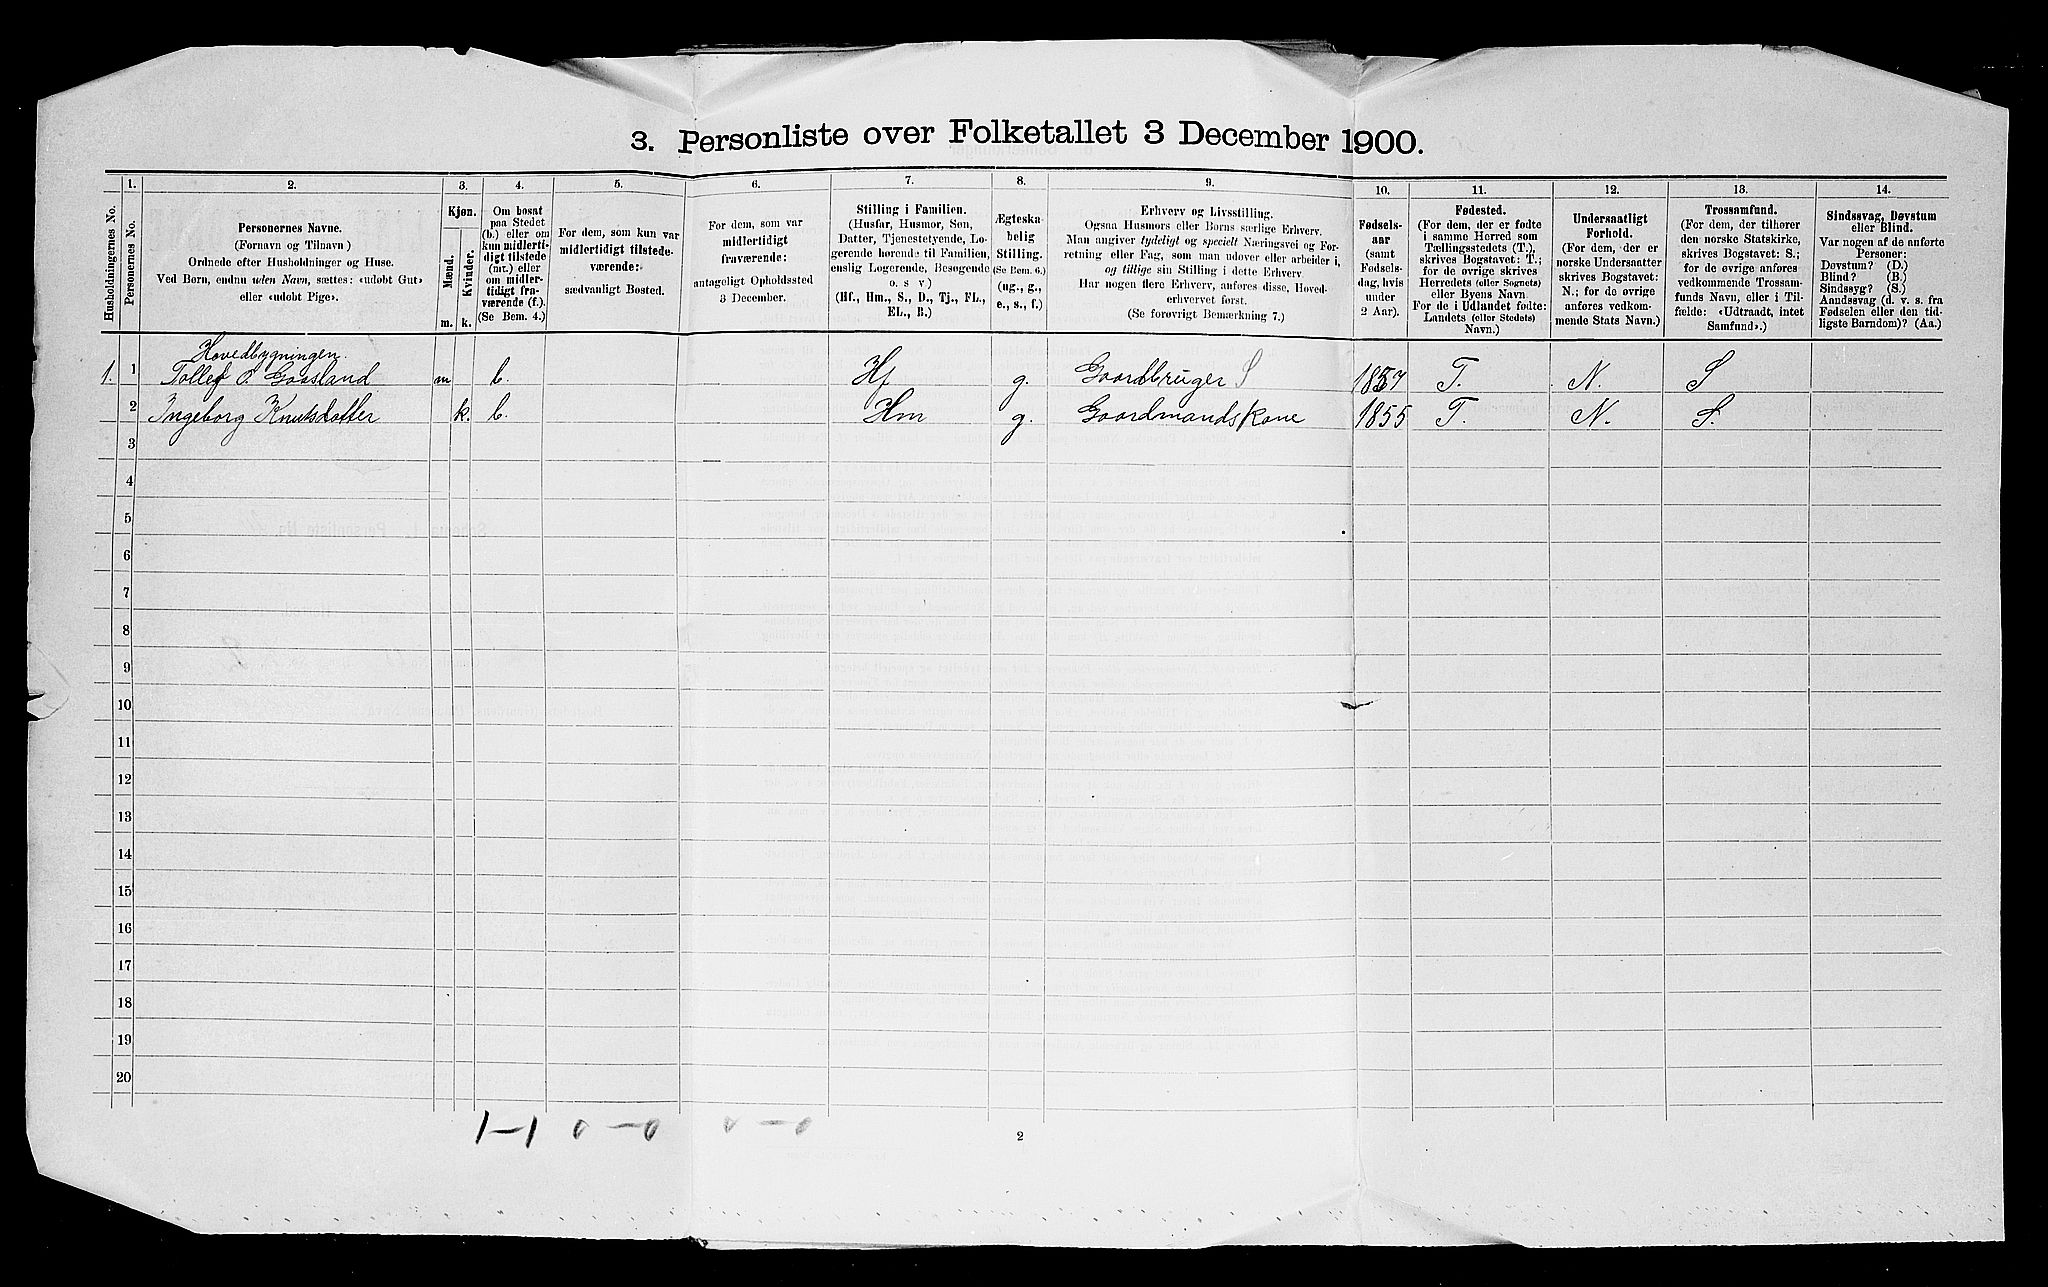 3. Personliste over Folketallet 3 December 1900.
Husholdningernes No.
1.
Personernes No.
2.
Personernes Navne.
(Fornavn og Tilnavn)
Ordnede efter Husholdninger og Huse.
Ved Børn, endnu uden Navn, sættes: «udøbt Gut»
eller «udøbt Pige».
3.
Kjøn.
Mænd.
m.
Kvinder.
k.
4.
Om bosat
paa Stedet
(b.) eller om
kun midlerti-
digt tilstede
(mt.) eller
om midler-
tidigt fra-
værende (f.)
(Se Bem. 4.)
5.
For dem, som kun var
midlertidigt tilstede-
værende:
sædvanligt Bosted.
6.
For dem, som var
midlertidigt
fraværende:
antageligt Opholdssted
3 December.
7.
Stilling i Familien.
(Husfar, Husmor, Søn,
Datter, Tjenestetyende, Lo-
gerende hørende til Familien,
enslig Logerende, Besøgende
o. s v)
(Hf., Hm., S., D., Tj., FL.,
EL., B.)
8.
Ægteska-
belig
Stilling.
(Se Bem. 6.)
(ug., g.,
e., s., f.)
9.
Erhverv og Livsstilling.
Ogsaa Husmors eller Børns særlige Erhverv.
Man angiver tydeligt og specielt Næringsvei og For-
retning eller Fag, som man udøver eller arbeider i,
og tillige sin Stilling i dette Erhverv.
Har nogen flere Erhverv, anføres disse, Hoved-
erhvervet først.
(Se forøvrigt Bemærkning 7.)
10.
Fødsels-
aar
(samt
Fødsels-
dag, hvis
under
2 Aar).
11.
Fødested.
(For dem, der er fødte
i samme Herred som
Tællingsstedets (T.),
skrives Bogstavet: T.;
for de øvrige skrives
Herredets (eller Sognets)
eller Byens Navn.
For de i Udlandet fødte:
Landets (eller Stedets)
Navn.)
12.
Undersaatligt
Forhold.
(For dem, der er
norske Undersaatter
skrives Bogstavet:
N.; for de øvrige
anføres vedkom-
mende Stats Navn.)
13.
Trossamfund.
(For dem, der tilhører
den norske Statskirke,
skrives Bogstavet: S.;
for de øvrige anføres
vedkommende Trossam-
funds Navn, eller i Til-
fælde: «Udtraadt, intet
Samfund».)
14.
Sindssvag, Døvstum
eller Blind.
Var nogen af de anførte
Personer:
Døvstum? (D.)
Blind? (B.)
Sindssyg? (S.)
Aandssvag (d. v. s. fra
Fødselen eller den tid-
ligste Barndom)? (Aa.)
Hovedbygningen.
1. 1 Tollef O. Gaasland m b. Hf g. Gaardbruger S 1857 T. N. S
2 Ingeborg Knutsdatter k. b. Hm g. Gaardmandskone 1855 T. N. S.
3
4
5
6
7
8
9
10
11
12
13
14
15
16
17
18
19
20
1-1 0-0 0-0
2